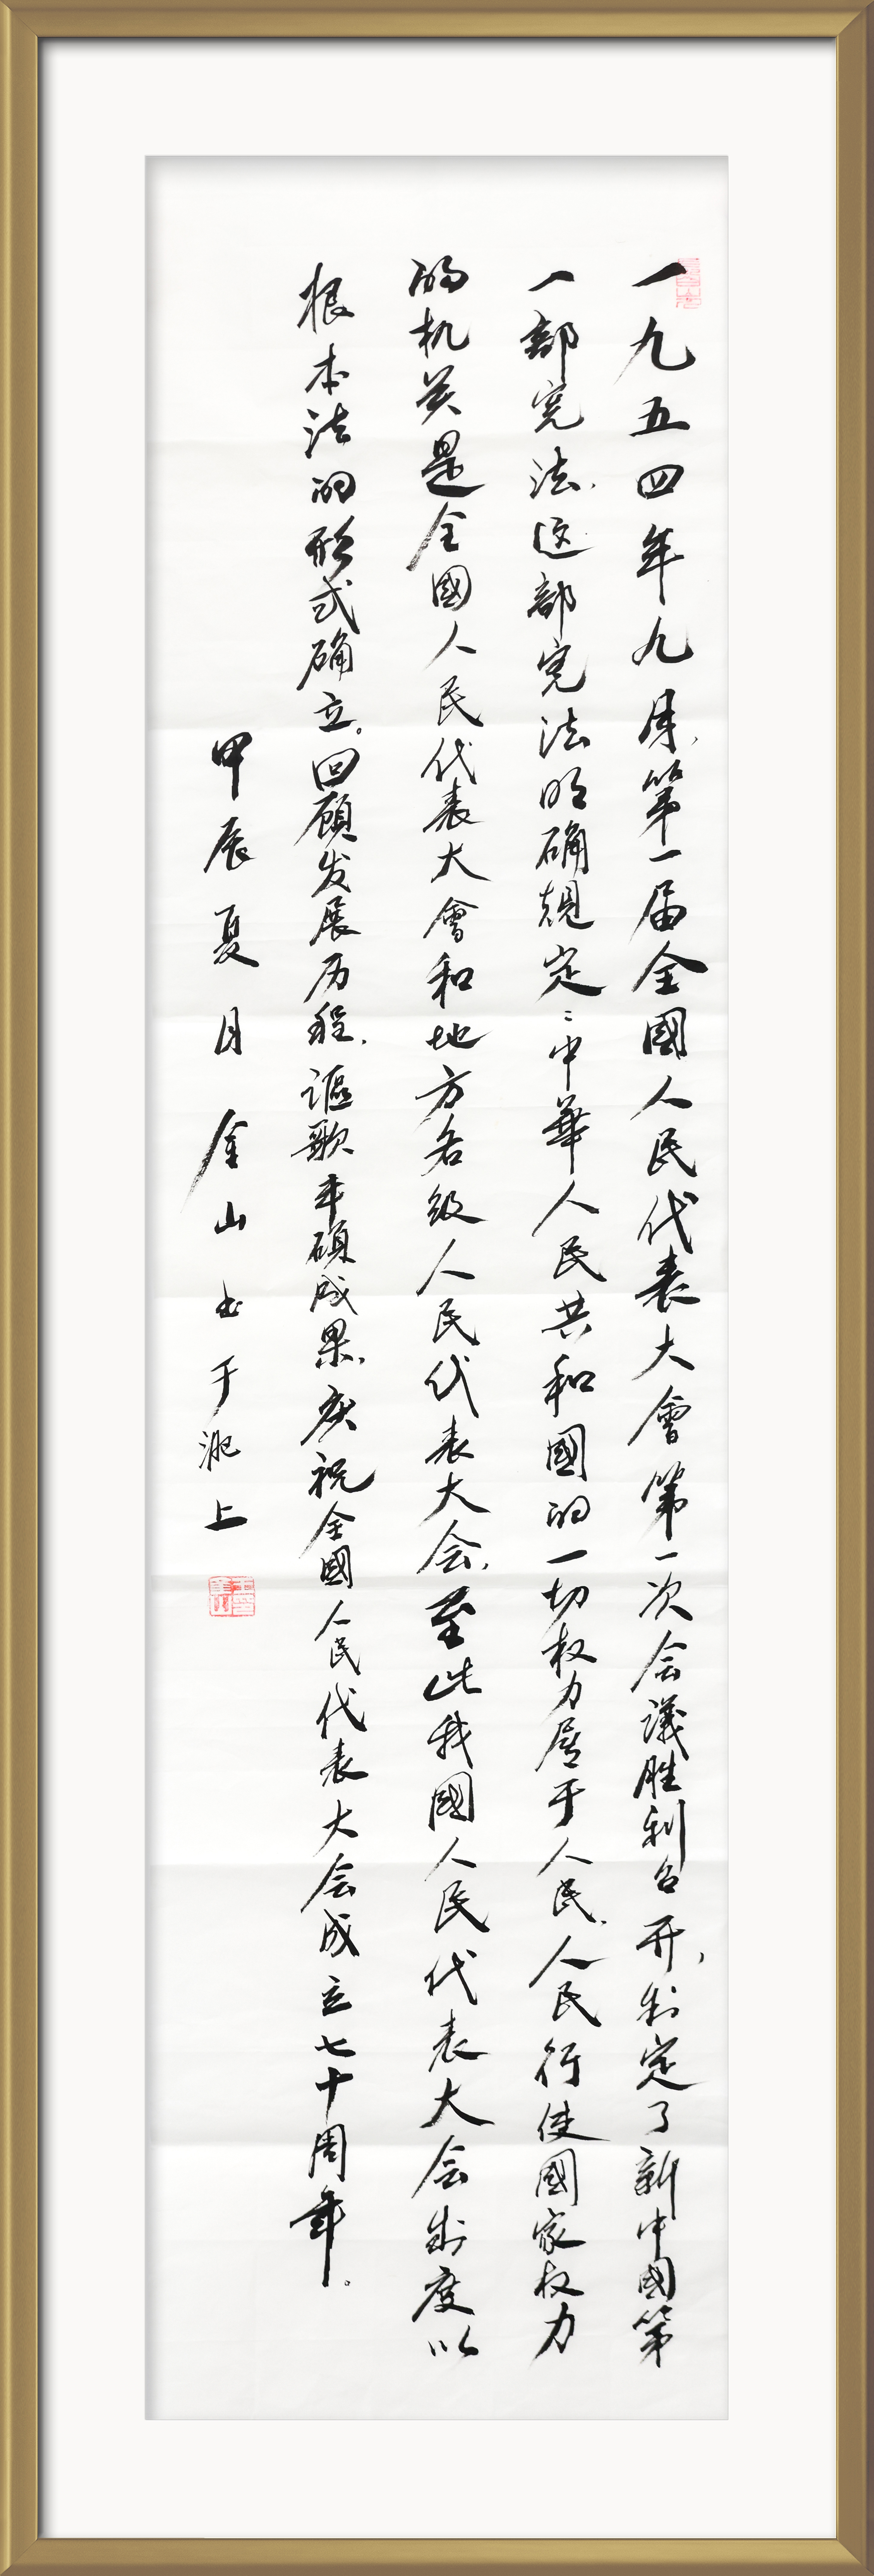 一九五四年九月，第一届全國人民代表大會第一次会議胜利召开，制定了新中國第
一部宪法，这部宪法明确規定：中華人民共和國的一切权力属于人民，人民行使國家权力
的机关是全國人民代表大會和地方各级人民代表大会，至此我國人民代表大会制度以
根本法的形式确立。回顾发展历程，謳歌丰碩成果，庆祝全國人民代表大会成立七十周年。
甲辰夏月金山书于淝上